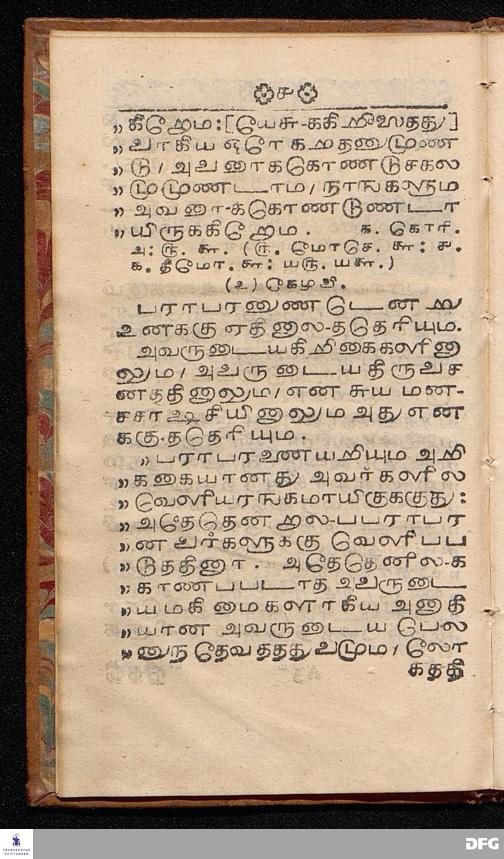 ௪
„ கிறோம: [யேசு-ககிறிஸ்தது]
„ வாகிய ஒரே கறததனுமுண
„ டு/ அவனாககொணடுசகல
„ முமுணடாம/ நாஙகளும
„ அவனா-கொணடுணடா
„ யிருககிறோம. க. கொரி.
அ: ரு. ௬. (ரு. மோசே. ௬: ௪.
க. தீமோ. ௬: யரு. ய௬.)
(உ) கேழவி.
பராபரனுண டென று
உனககு ஏதினால-ததெரியும.
அவருடையகிறிகைகளினா
லும/ அவருடைய திருவச
னததினாலும/ என சுய மன-
சசாக்ஷியினாலும அது என
ககு-ததெரியும.
„ பராபரனை யறியும அறி
„ ககையானது அவர்களில
„ வெளியரஙகமாயிருககுது:
„ அதேதென றால-பபராபர
„ ன அவர்களுககு வெளிபப
„ டுததினார. அதேதெனில-க
„ காணபபடாத அவருடை
„ யமகிமைகளாகிய அனாதி
„ யான அவருடைய பெல
„ னுந தேவததது வமும/ லோ
கததி
DFG